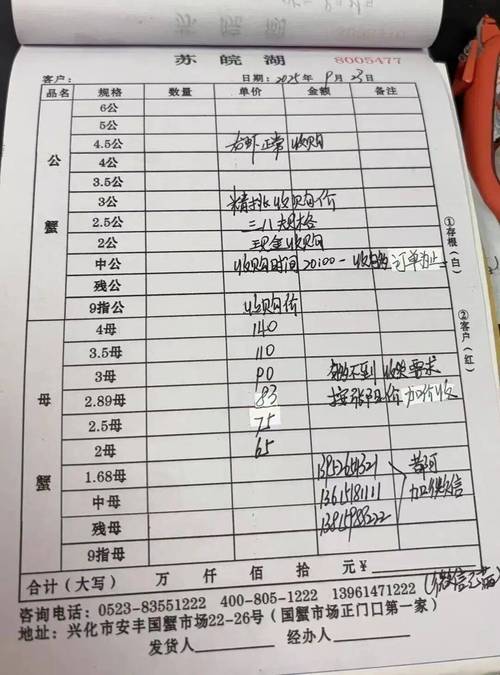 苏皖湖
8005477
客户： 日期：2025年9月23日
品名 规格 数量 单价 金额 备注
公蟹
6公
5公
4.5公 虾正常收购
4公
3.5公
3公 精挑收购价
2.5公 三八大规格
2公 现金收购
中公 收购时间20:00-收购 订单为止
残公
9指公 收购价
母蟹
4母 140
3.5母 110
3母 90 收购要求
2.89母 83 按 价 加价收
2.5母 75
2母 65
1.68母
中母 13615181111 都可
残母 13815988222 加微信
9指母
①存根（白）
②客户（红）
合计（大写） 万 仟 佰 拾 元￥
咨询电话：0523-83551222 400-805-1222 13961471222
地址：兴化市安丰国蟹市场22-26号（国蟹市场正门口第一家）
发货人 经办人